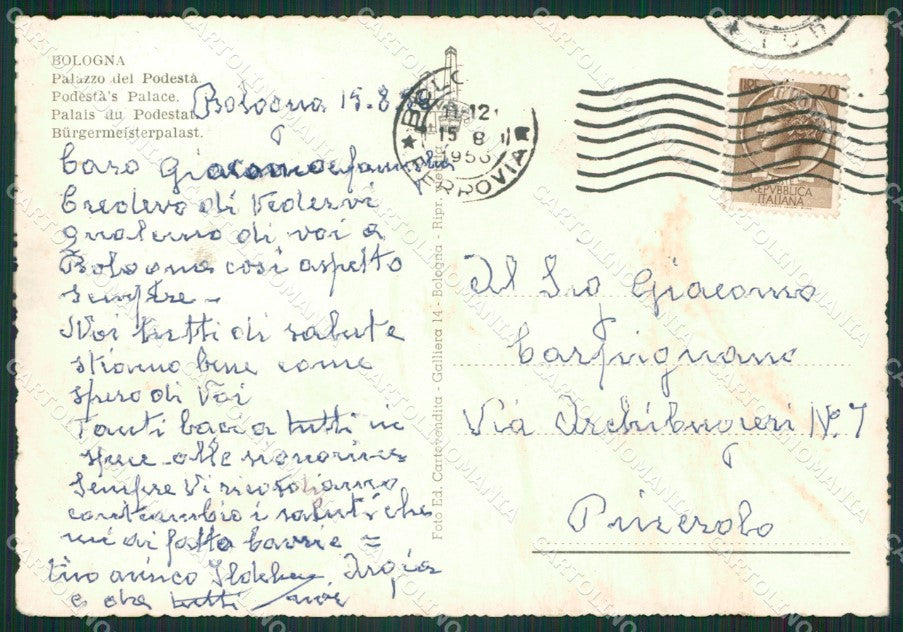 BOLOGNA
Palazzo del Podestà
Podestà's Palace.
Palais du Podestat.
Bürgermeisterpalast.
Bologna 15.8
Caro Giacomo e famiglia
Credevo di Vedervi
qualcuno di voi a
Bologna così aspetto
sempre -
Noi tutti di salute
stiamo bene come
spero di Voi
Tanti baci a tutti in
spece alle
Sempre Vi ricordiamo
contraccambio i saluti che
mi di fatto =
tuo amico Argia
e tutti
Foto Ed. Cartevendita - Galliera 14 - Bologna - Ripr.
BOLOGNA
11-12
15 8
FERROVIA
LIRE 20
REPVBBLICA
ITALIANA
Al Sig Giacomo
Carpignano
Via Archibugieri N. 7
Pinerolo
CARTOLINOMANIA